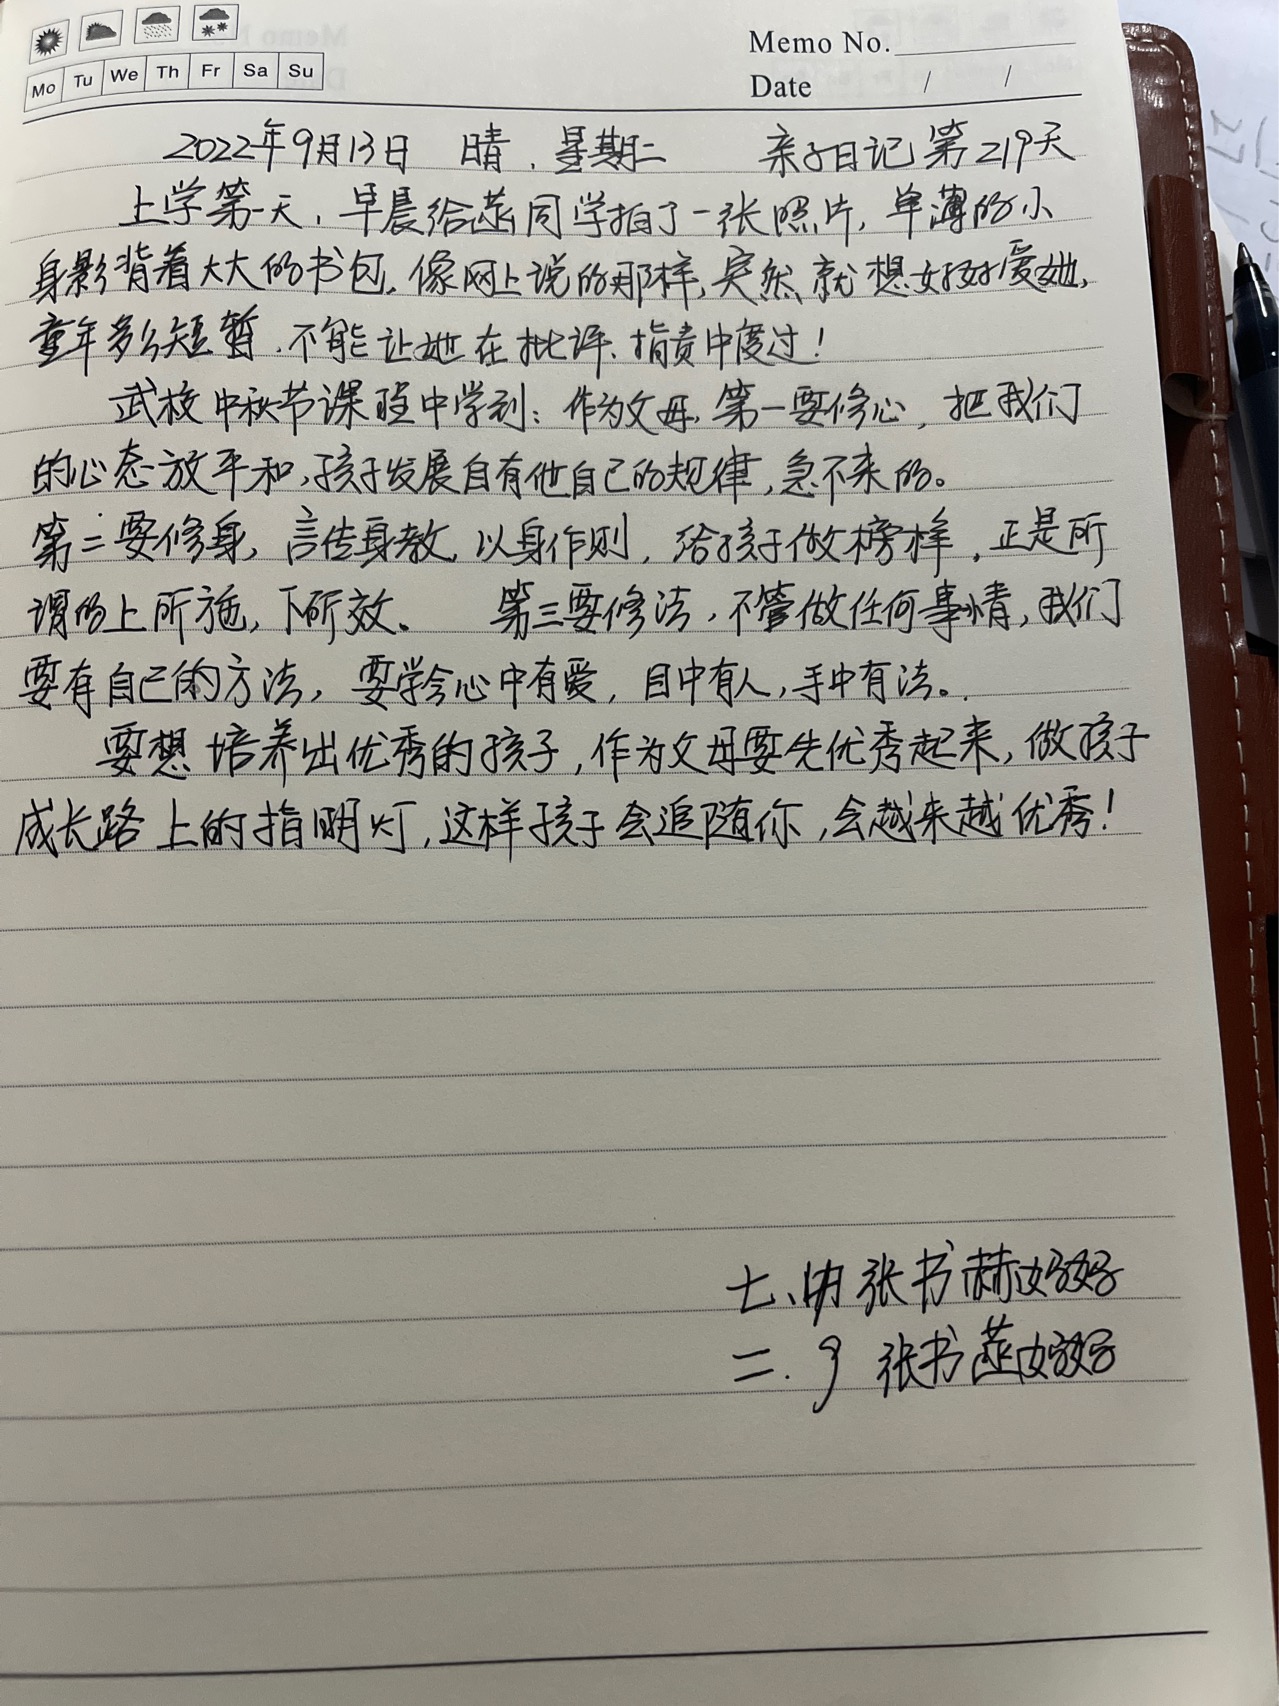 Memo No.
Mo Tu We Th Fr Sa Su
Date / /
2022年9月13日 晴.星期二 亲子日记第219天
上学第一天,早晨给菡同学拍了一张照片,单薄的小
身影背着大大的书包,像网上说的那样,突然就想好好爱她,
童年多么短暂.不能让她在批评、指责中度过!
武校中秋节课程中学到:作为父母,第一要修心,把我们
的心态放平和,孩子发展自有他自己的规律,急不来的。
第二要修身,言传身教,以身作则,给孩子做榜样,正是所
谓的上所施,下所效。 第三要修法,不管做任何事情,我们
要有自己的方法,要学会心中有爱,目中有人,手中有法。
要想培养出优秀的孩子,作为父母要先优秀起来,做孩子
成长路上的指明灯,这样孩子会追随你,会越来越优秀!
七、 张书赫妈妈
二. 张书 妈妈